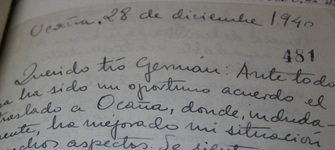 Ocaña, 28 de diciembre 1940
481
Querido tío Germán: Ante todo
ha sido un oportuno acuerdo el
traslado a Ocaña, donde, induda-
mente, ha mejorado mi situación
muchos aspectos. de